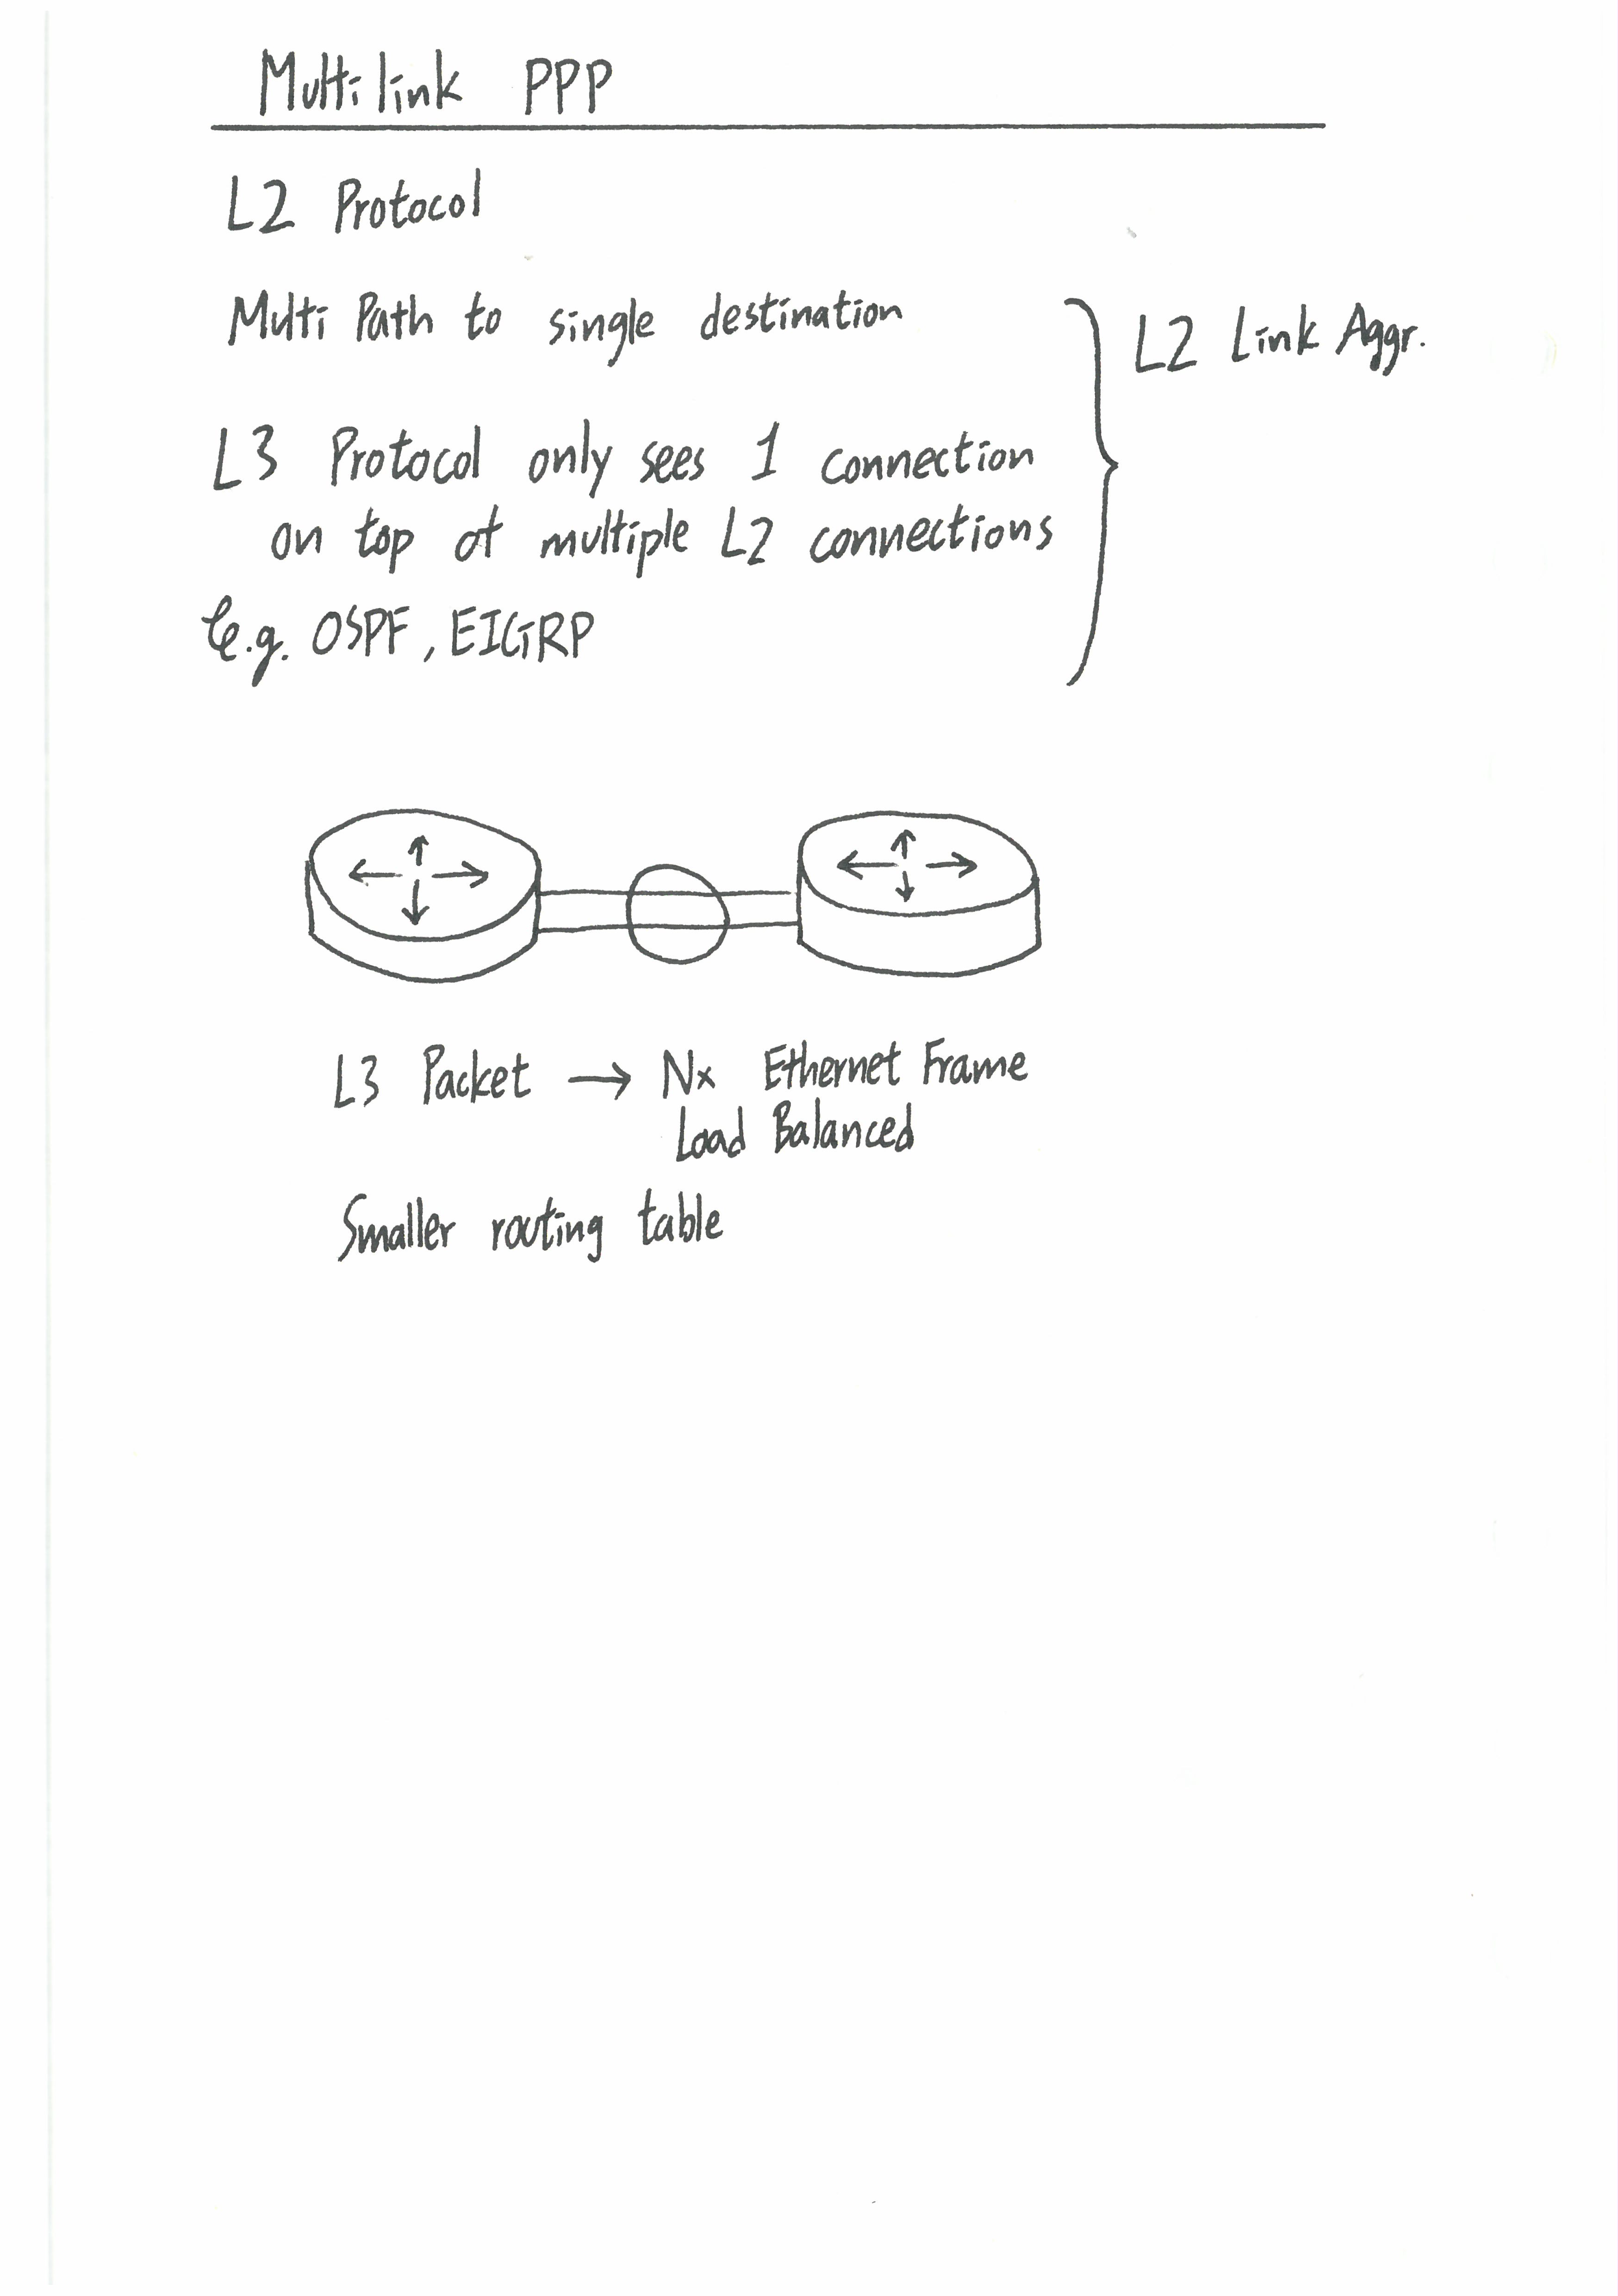 Multilink PPP
L2 Protocol
Multi Path to single destination
L2 Link Aggr.
L3 Protocol only sees 1 connection
on top of multiple L2 connections
e.g. OSPF, EIGRP
L3 Packet → Nx Ethernet Frame
Load Balanced
Smaller routing table